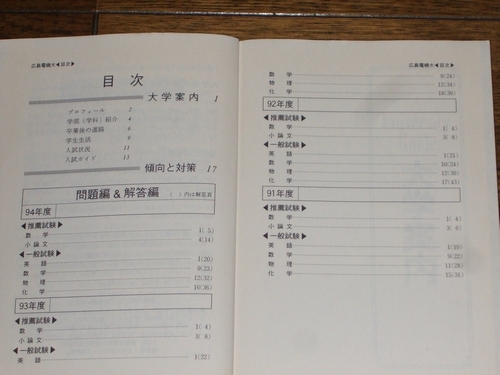 広島電機大◀目次▶
目次
大学案内 1
プロフィール 2
学部(学科)紹介 4
卒業後の進路 6
学生生活 8
入試状況 11
入試ガイド 13
傾向と対策 17
問題編&解答編 ( )内は解答頁
94年度
◀推薦試験▶
数学 1(5)
小論文 4(14)
◀一般試験▶
英語 1(20)
数学 9(23)
物理 12(32)
化学 16(36)
93年度
◀推薦試験▶
数学 1(4)
小論文 3(8)
◀一般試験▶
英語 1(22)
広島電機大◀目次▶
数学 9(24)
物理 12(34)
化学 16(39)
92年度
◀推薦試験▶
数学 1(4)
小論文 3(8)
◀一般試験▶
英語 1(21)
数学 10(24)
物理 12(36)
化学 17(43)
91年度
◀推薦試験▶
数学 1(4)
小論文 3(6)
◀一般試験▶
英語 1(19)
数学 9(22)
物理 11(28)
化学 15(34)